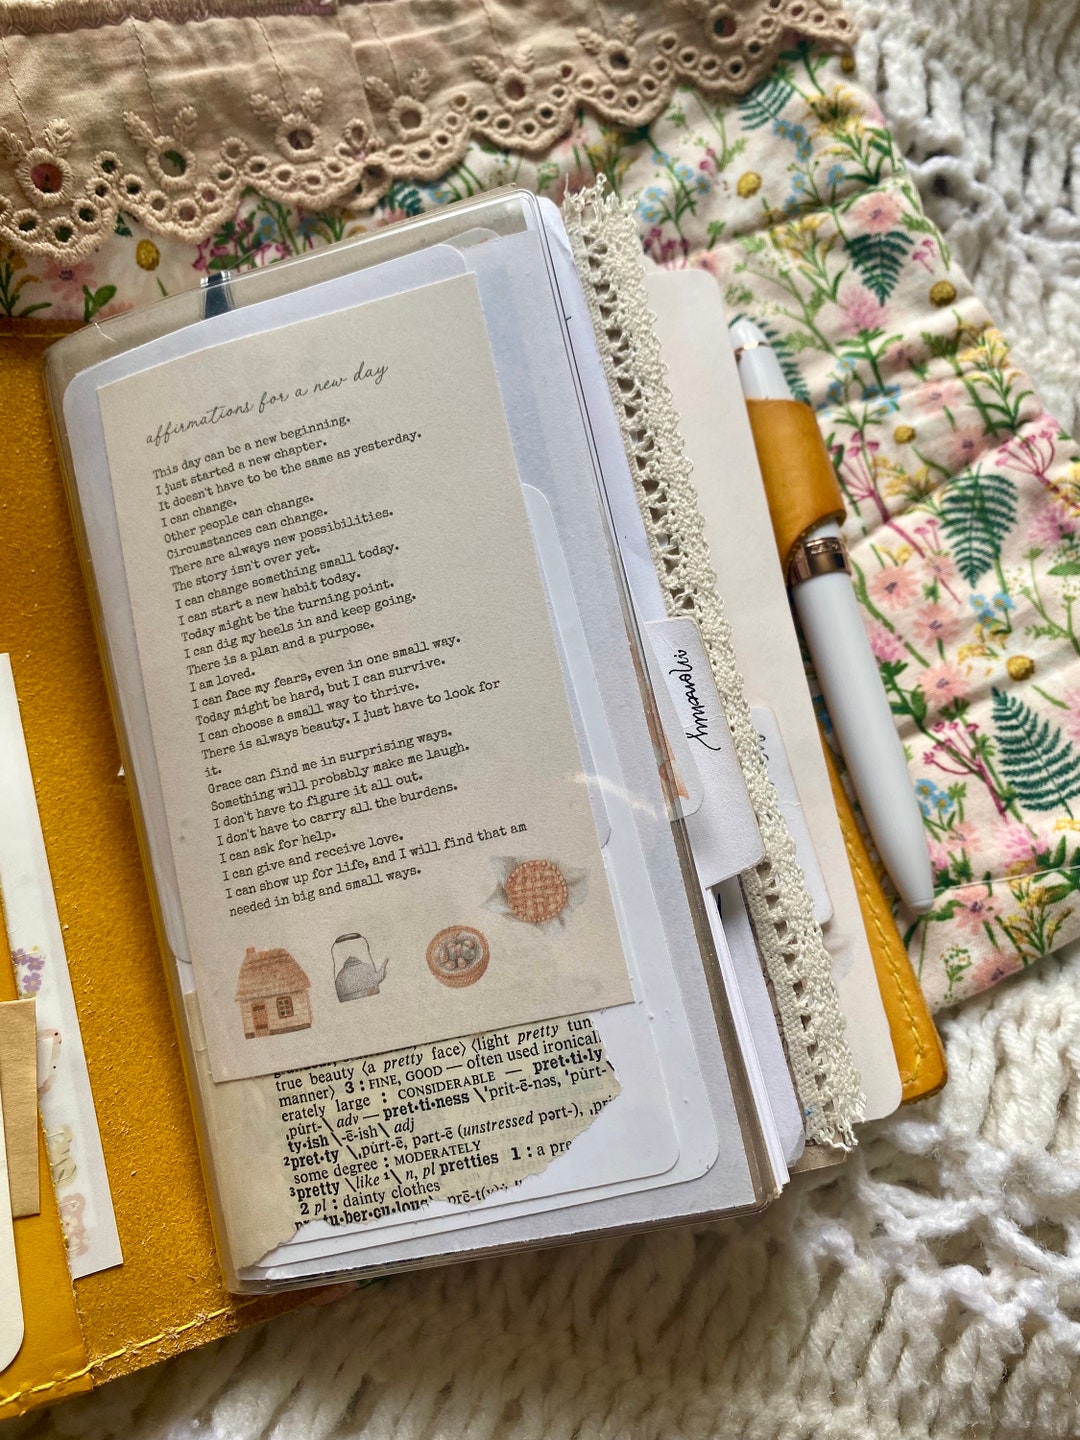 affirmations for a new day
This day can be a new beginning.
I just started a new chapter.
It doesn't have to be the same as yesterday.
I can change.
Other people can change.
Circumstances can change.
There are always new possibilities.
The story isn't over yet.
I can change something small today.
I can start a new habit today.
Today might be the turning point.
I can dig my heels in and keep going.
There is a plan and a purpose.
I am loved.
I can face my fears, even in one small way.
Today might be hard, but I can survive.
I can choose a small way to thrive.
There is always beauty. I just have to look for
it.
Grace can find me in surprising ways.
Something will probably make me laugh.
I don't have to figure it all out.
I don't have to carry all the burdens.
I can ask for help.
I can give and receive love.
I can show up for life, and I will find that am
needed in big and small ways.
a pretty face⟩ ⟨light pretty tun
true beauty ⟨a pretty face⟩
manner⟩ 3 : FINE, GOOD — often used ironical
erately large : CONSIDERABLE — pret·ti·ly
ˌpu̇rt-\ adv — pret·ti·ness \ˈprit-ē-nəs, ˈpu̇rt-\
ty·ish \-ē-ish\ adj
²pret·ty \ˌpu̇rt-ē, pərt-ē (unstressed pərt-), ˌpri
some degree : MODERATELY
³pretty \like ¹\ n, pl pretties 1 : a pre
2 pl : dainty clothes